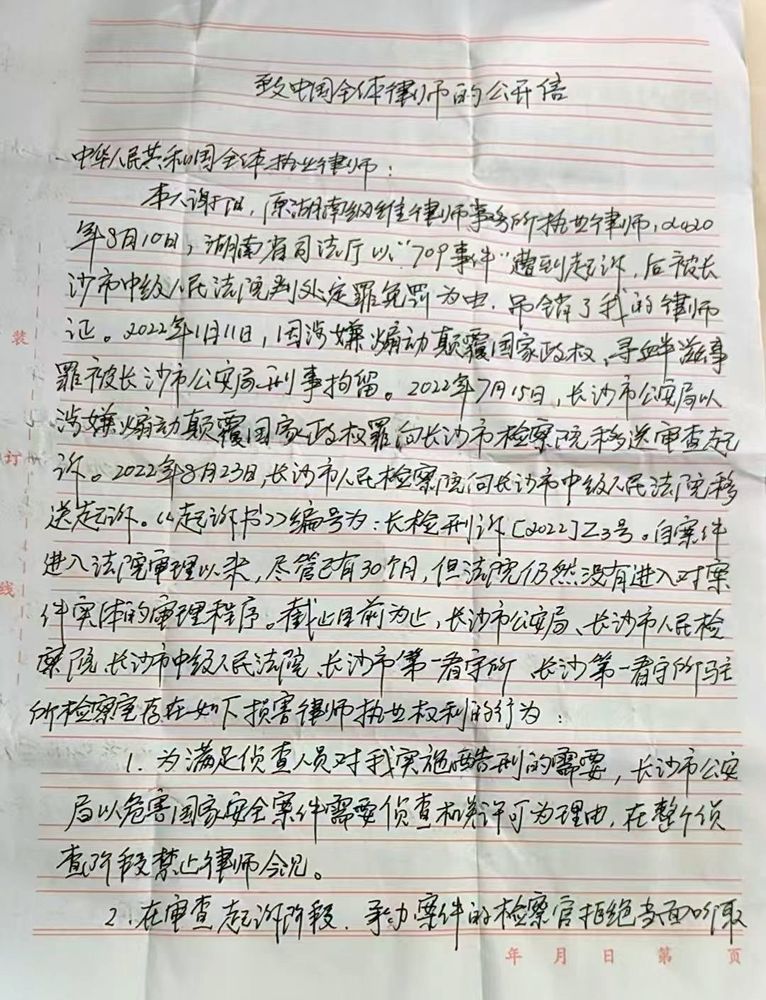 致中国全体律师的公开信
中华人民共和国全体执业律师：
本人谢阳，原湖南纲维律师事务所执业律师，2020
年8月10日，湖南省司法厅以“709事件”遭到起诉，后被长
沙市中级人民法院判处定罪免罚为由，吊销了我的律师
证。2022年1月11日，因涉嫌煽动颠覆国家政权，寻衅滋事
罪被长沙市公安局刑事拘留。2022年7月15日，长沙市公安局以
涉嫌煽动颠覆国家政权罪向长沙市检察院移送审查起
诉。2022年8月23日，长沙市人民检察院向长沙市中级人民法院移
送起诉。《起诉书》编号为：长检刑诉［2022］Z3号。自案件
进入法院审理以来，尽管已有30个月，但法院仍然没有进入对案
件实体的审理程序。截止目前为止，长沙市公安局、长沙市人民检
察院、长沙市中级人民法院、长沙市第一看守所、长沙第一看守所驻
所检察室存在如下损害律师执业权利的行为：
1. 为满足侦查人员对我实施酷刑的需要，长沙市公安
局以危害国家安全案件需要侦查机关许可为理由，在整个侦
查阶段禁止律师会见。
2. 在审查起诉阶段，承办案件的检察官拒绝当面听取
装
订
线
年 月 日 第 页